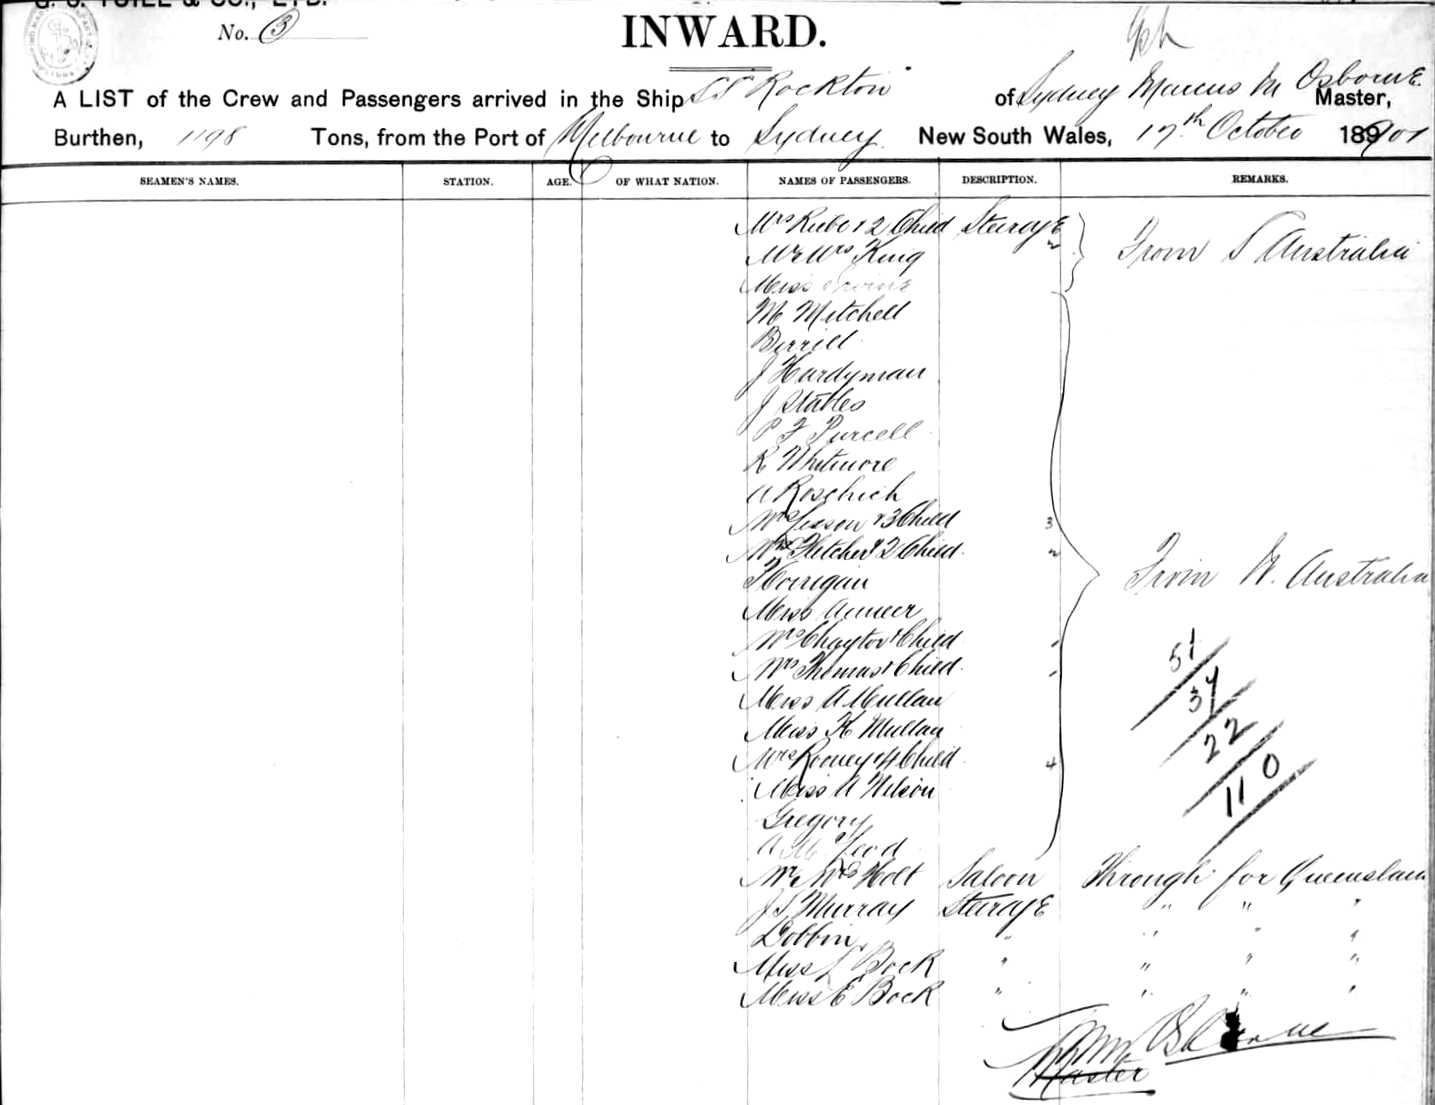 No. 3
INWARD.
A LIST of the Crew and Passengers arrived in the Ship SS Rockton of Sydney Marcus M Osborne Master,
Burthen, 1198 Tons, from the Port of Melbourne to Sydney New South Wales, 17th October 1901
SEAMEN'S NAMES. STATION. AGE. OF WHAT NATION. NAMES OF PASSENGERS. DESCRIPTION. REMARKS.
Mrs & 2 Child Steerage
Mr Mrs King 2 From S Australia
Miss
M Mitchell
Birrell
J Hardyman
J Stables
P F Purcell
R Whitmore
A Roschich
Mrs & 3 Child 3
Mrs Fletcher & 2 Child 2
Corrigan From W. Australia
Miss
Mrs Chaytor & Child 1
Mrs Thomas & Child 1
Miss A Mullan
Miss K Mullan
Mrs Rooney & 4 Child 4
Miss A Wilson
Gregory
A McLeod
51
37
22
110
Mr Mrs Holt Saloon Through for Queensland
J S Murray Steerage " " "
Dobbin " " " "
Miss J Bock " " " "
Miss E Bock " " " "
M M Osborne
Master